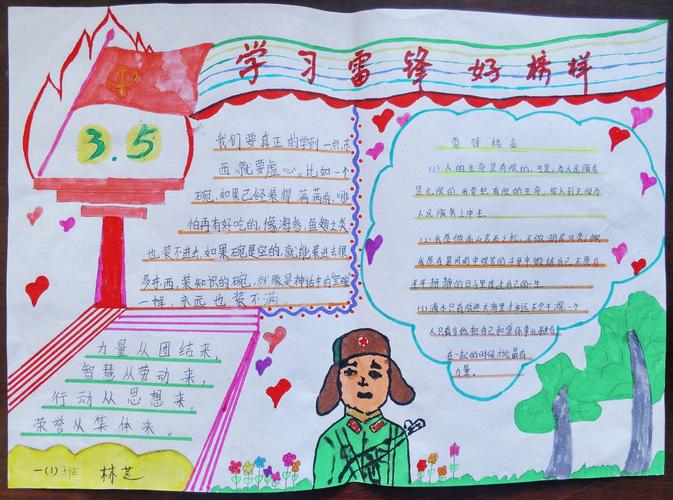 学习雷锋好榜样
3.5
我们要真正的学到一点东
西,就要虚心。比如一个
碗,如果已经装得满满的,哪
怕再有好吃的,像海参,鱼翅之类
也装不进去,如果碗是空的,就能装进去很
多东西,装知识的碗,就像是神话中的宝碗
一样,永远也装不满
雷锋格言
(1)人的生命是有限的,可是,为人民服务
是无限的,我要把有限的生命,投入到无限为
人民服务之中去。
(2)我愿做高山岩石之松,不做湖岸河旁之柳
我愿在暴风雨中艰苦的斗争中锻炼自己不愿在
平平静静的日子里度过自己的一生
(3)滴水只有放进大海里才永远不会干涸,一个
人只有当他把自己和集体事业融合
在一起的时候才能最有
力量。
力量从团结来,
智慧从劳动来,
行动从思想来,
荣誉从集体来。
一(1)班 林芝